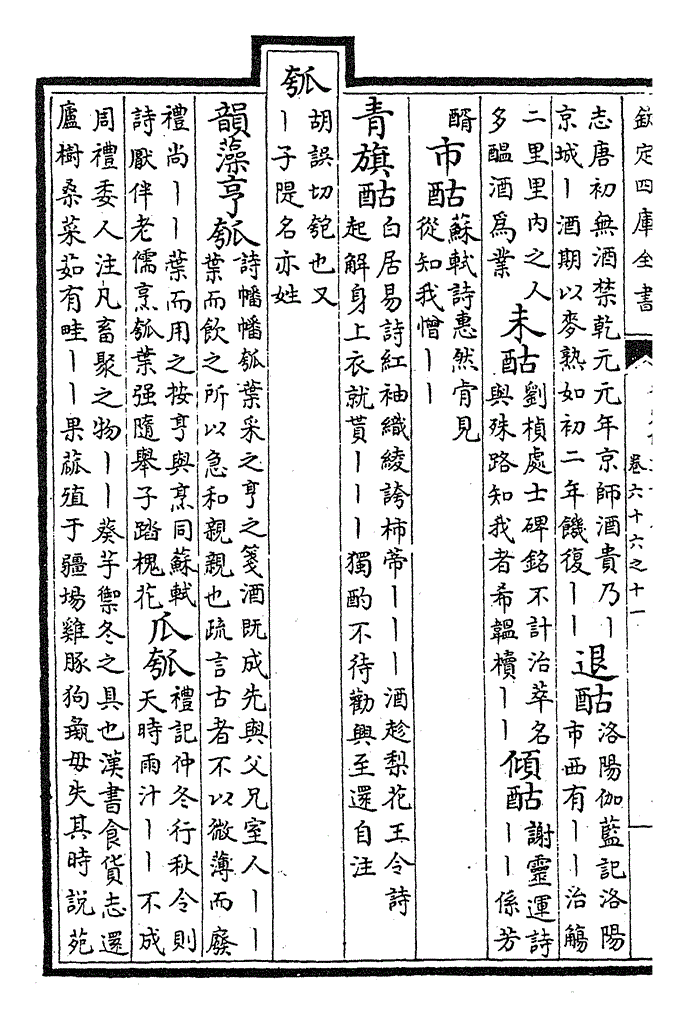 欽定四庫全書
卷六十六之十一
志唐初無酒禁乾元元年京師酒貴乃丨
京城丨酒期以麥熟如初二年饑復丨丨
退酤
洛陽伽藍記洛陽
市西有丨丨治觴
二里里内之人
多醖酒爲業
未酤
劉楨處士碑銘不計治萃名
與殊路知我者希韞櫝丨丨
傾酤
謝靈運詩
丨丨係芳
醑
市酤
蘇軾詩惠然肯見
從知我憎丨丨
青旗酤
白居易詩紅袖織綾誇柿蒂丨丨丨酒趁梨花王令詩
起解身上衣就貰丨丨丨獨酌不待勸興至還自注
瓠
胡誤切匏也又
丨子隄名亦姓
韻藻亨瓠
詩幡幡瓠葉采之亨之箋酒既成先與父兄室人丨丨
葉而飲之所以急和親親也疏言古者不以微薄而廢
禮尚丨丨葉而用之按亨與烹同蘇軾
詩厭伴老儒烹瓠葉强隨舉子踏槐花
瓜瓠
禮記仲冬行秋令則
天時雨汁丨丨不成
周禮委人注凡畜聚之物丨丨葵芋禦冬之具也漢書食貨志還
廬樹桑菜茹有畦丨丨果蓏殖于疆場雞豚狗彘毋失其時説苑